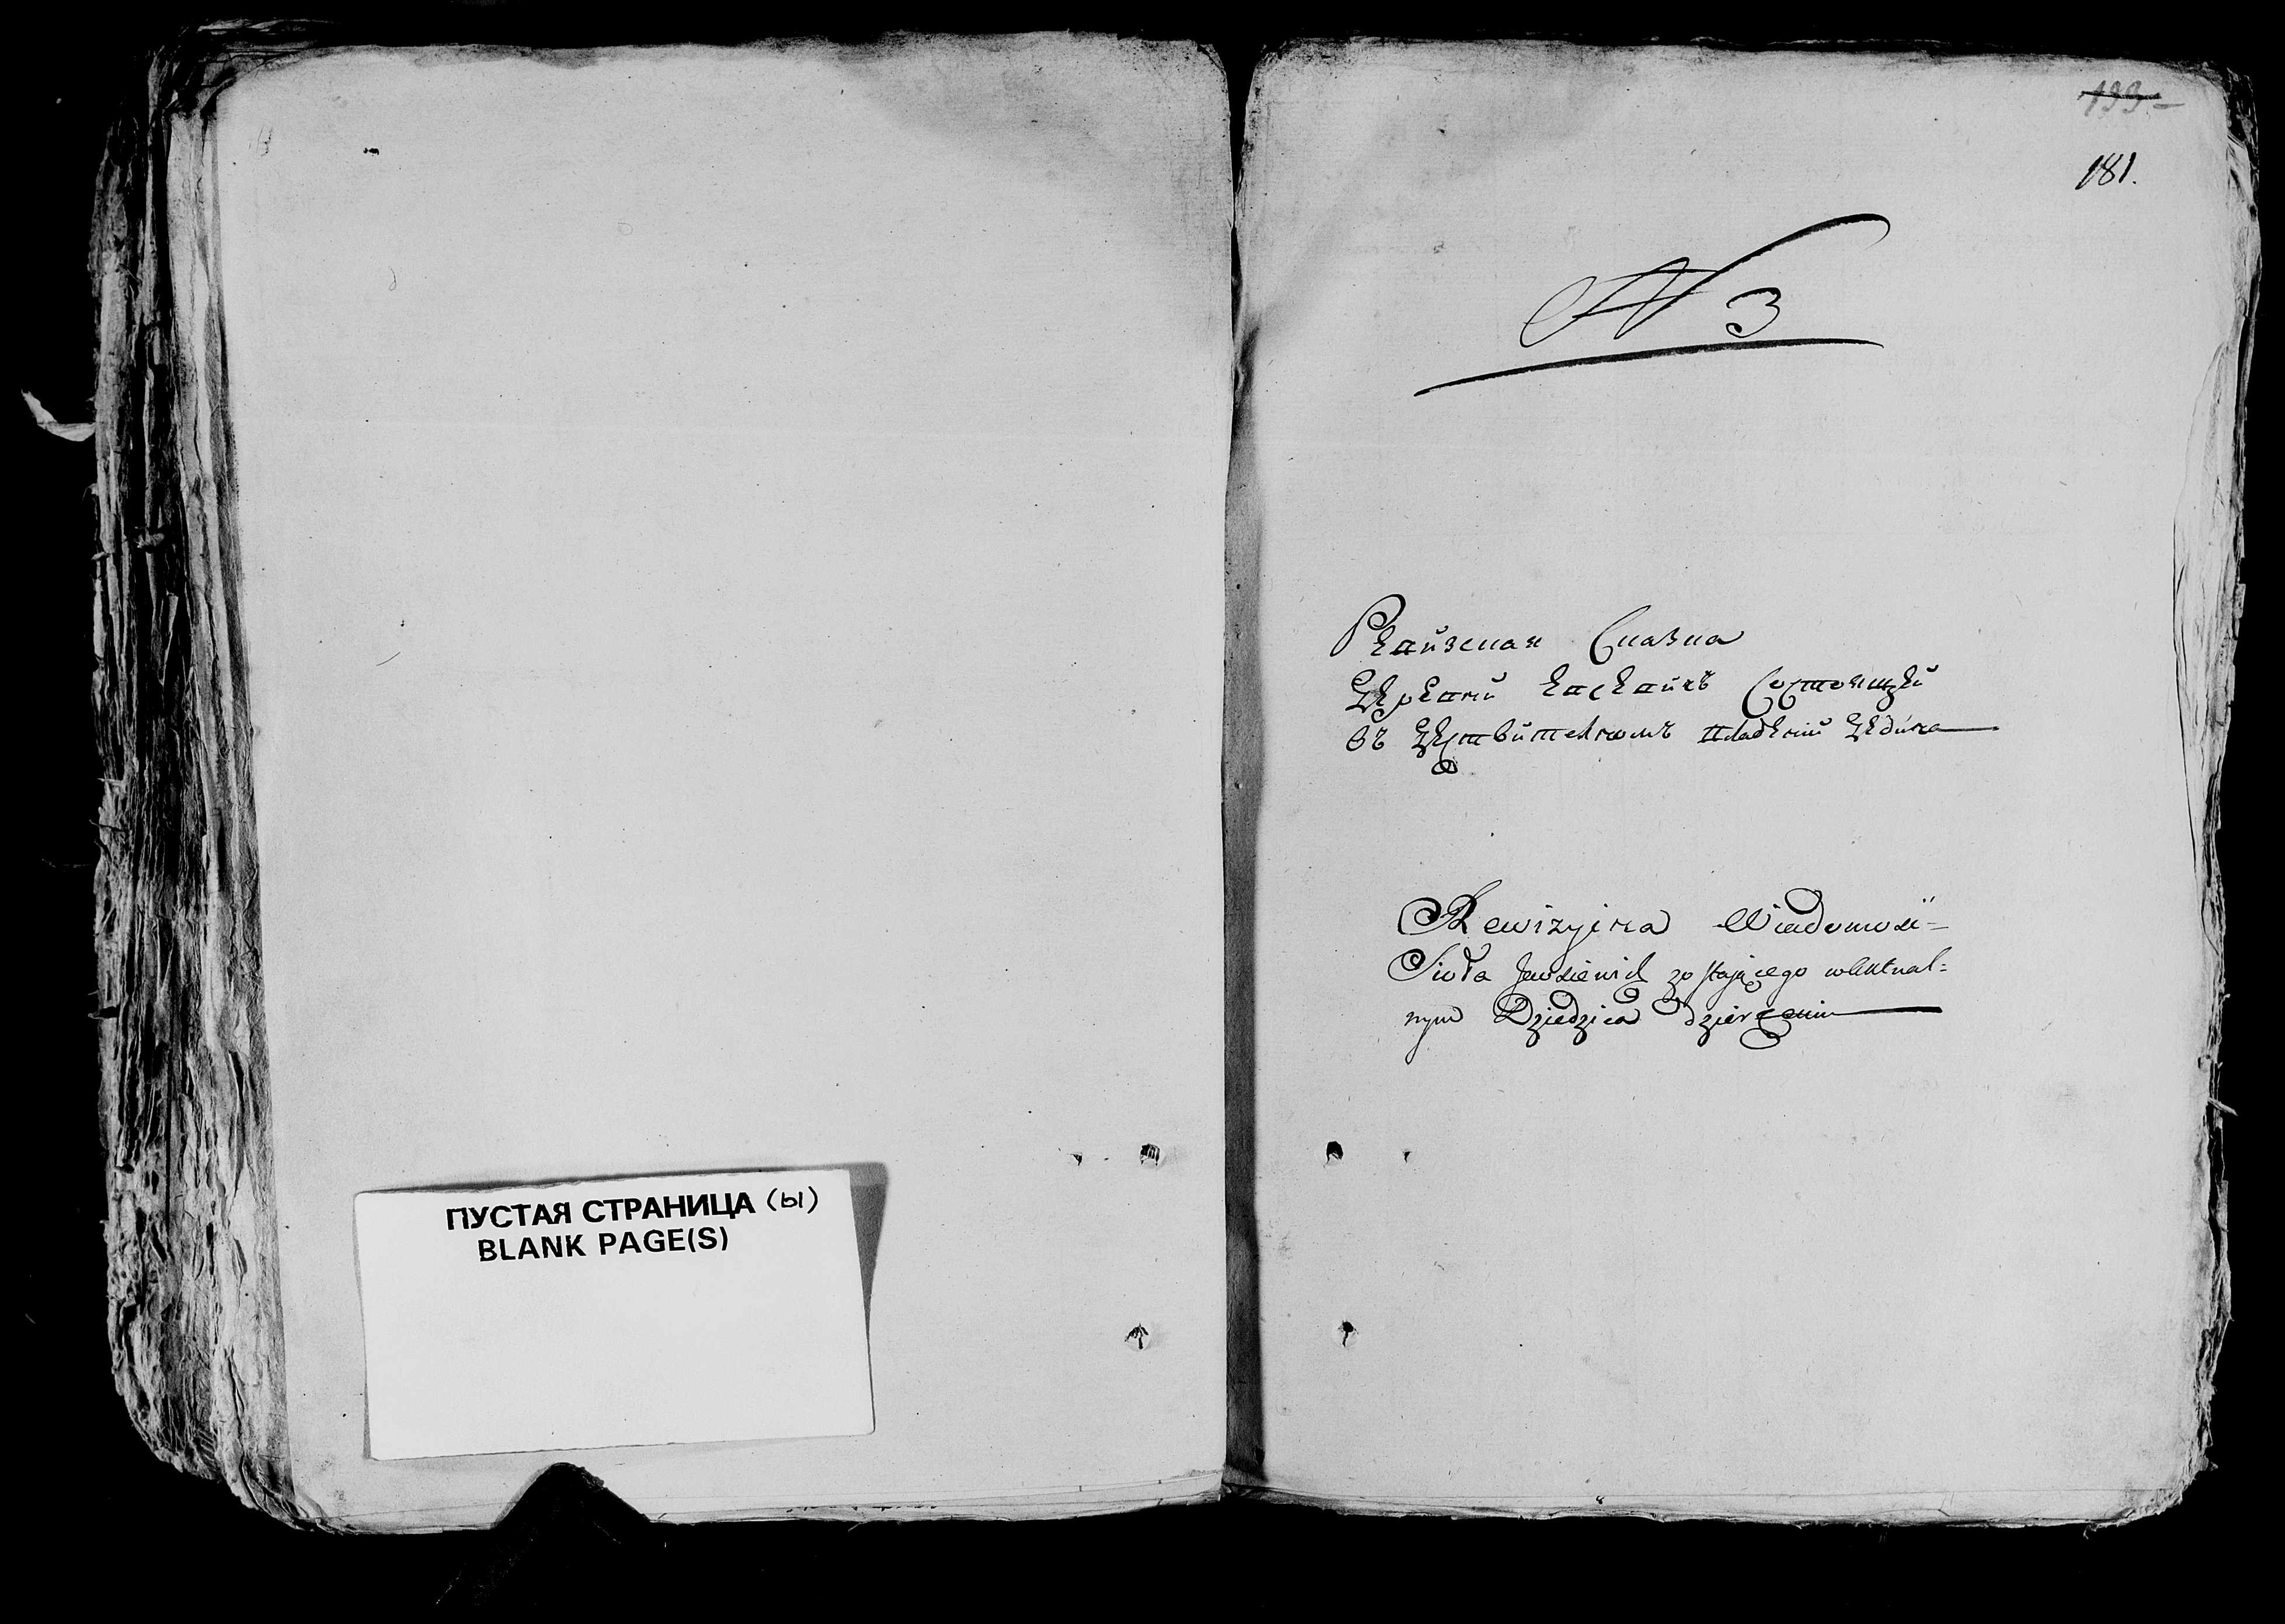 ПУСТАЯ СТРАНИЦА (ы)
BLANK PAGE(S)
193
181.
N 3
Ревизская Сказка
Деревни Евсевичъ Состоящей
въ Действителномъ владении Дедича
Rewizyina Wiadomość
Sioła Jewsiewicz zostaiącego w Aktual=
nym Dziedzica Dzierżeniu